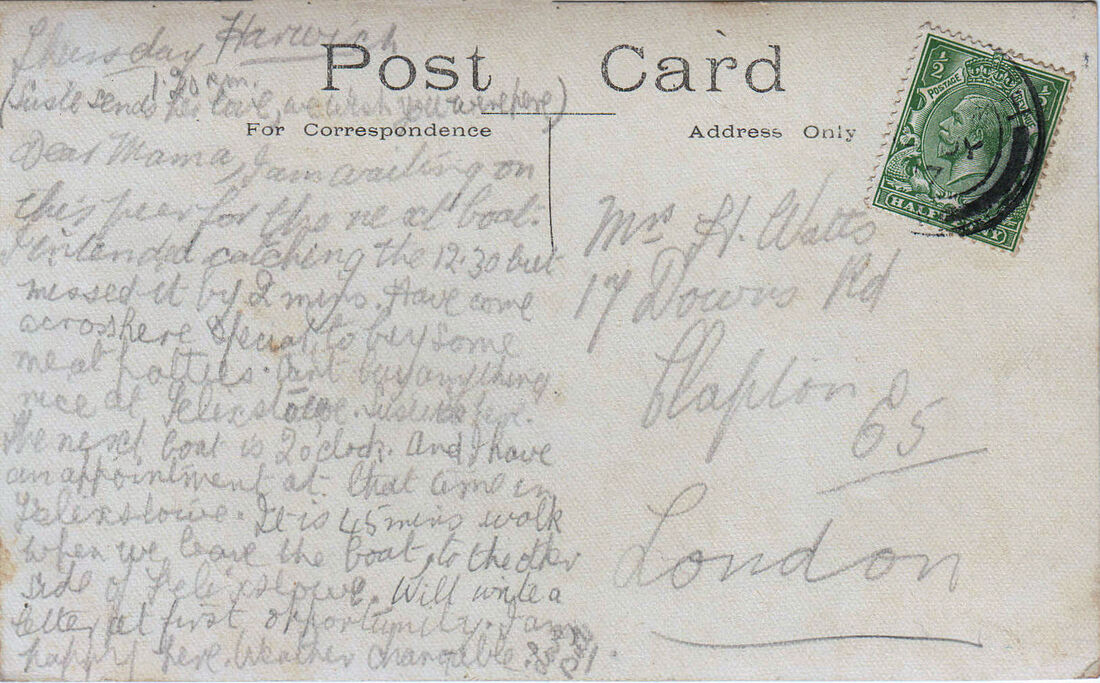 Thursday Harwich
1.30 p.m.
(Susie sends her love, we wish you were here)
Post Card
For Correspondence
Address Only
½
POSTAGE
½
HALFPENNY
Dear Mama, I am waiting on
this pier for the next boat.
I intended catching the 12.30 but
missed it by 2 mins. Have come
across here special to buy some
meat patties. Cant buy anything
nice at Felixstowe. Susie is
The next boat is 2 o clock. And I have
an appointment at that time in
Felixstowe. It is 45 mins walk
when we leave the boat, to the other
side of Felixstowe. Will write a
letter at first opportunity. I am
happy here. Weather changeable.
Mrs H. Watts
17 Downs Rd
Clapton
65
London